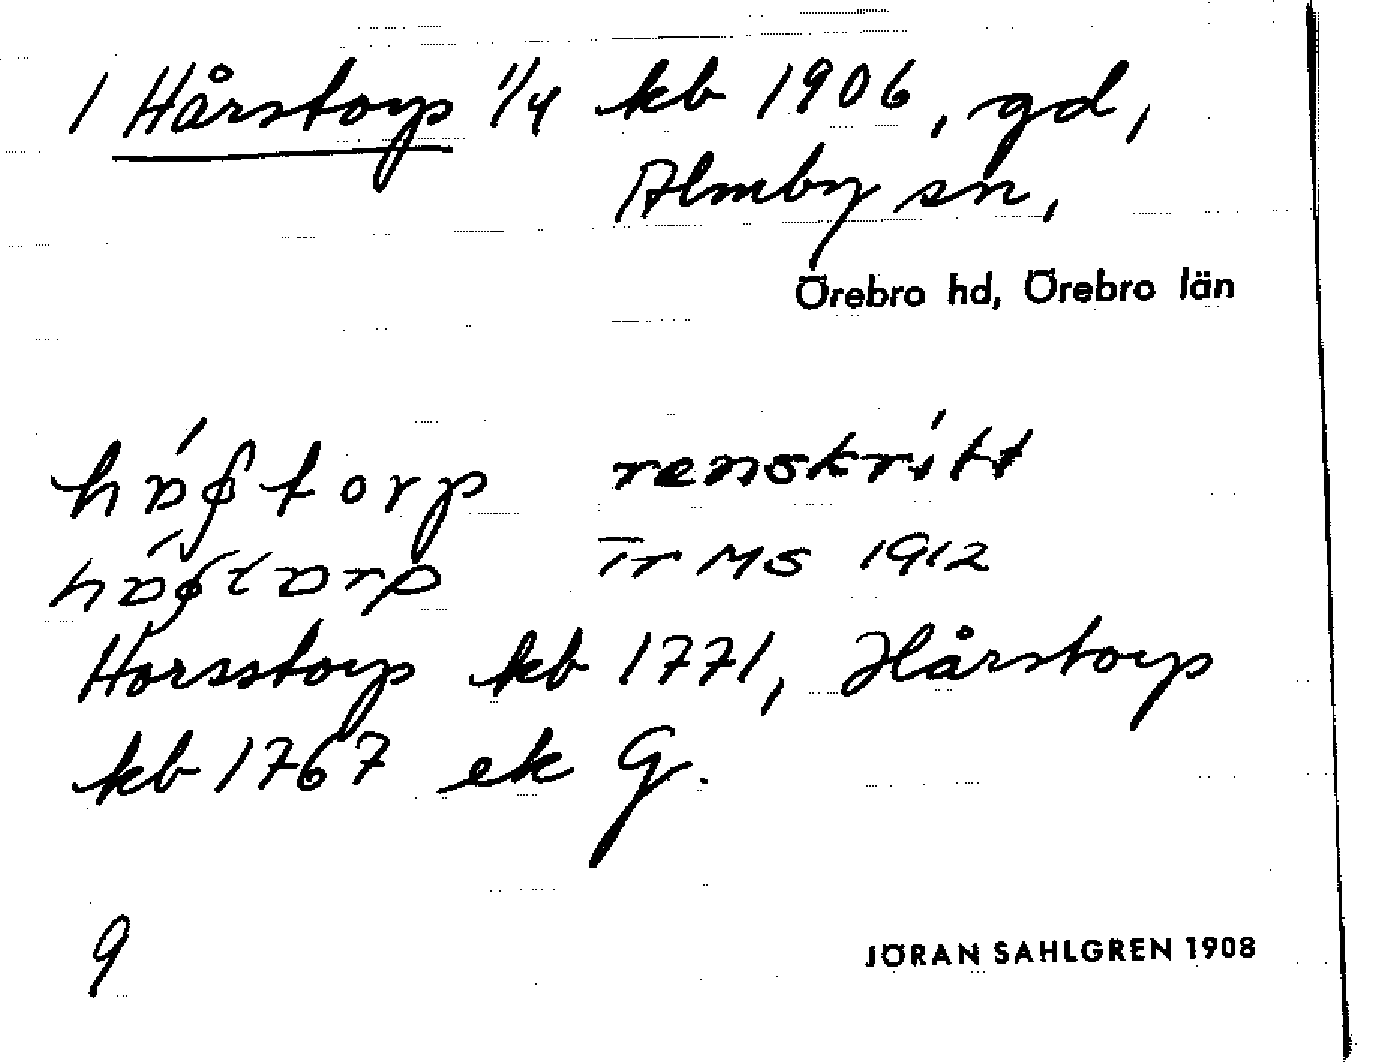 1 Hårstorp 1/4 kb 1906, gd,
Almby sn,
Örebro hd, Örebro län
renskritt
MS 1912
Horsstorp kb 1771, Hårstorp
kb 1767 ek G.
9
JÖRAN SAHLGREN 1908